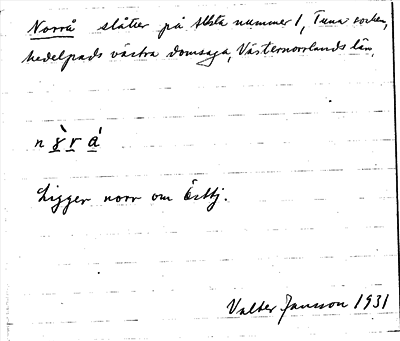 Norrå slåtter på Åsta nummer 1, Tuna socken,
Medelpads västra domsaga, Västernorrlands län.
Ligger norr om
Valter Jansson 1931